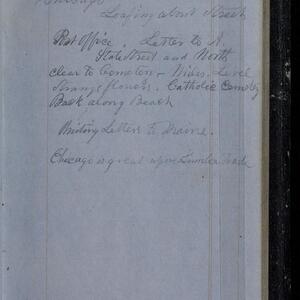 Chicago
Loafing about Street
Post Office. Letter to A.
State Street and North
clear to Cemetery - Wide. Level
Strange flowers. Catholic Cemetry
Back along Beach
Writing Letters to Maine.
Chicago is great upon Lumber Trade